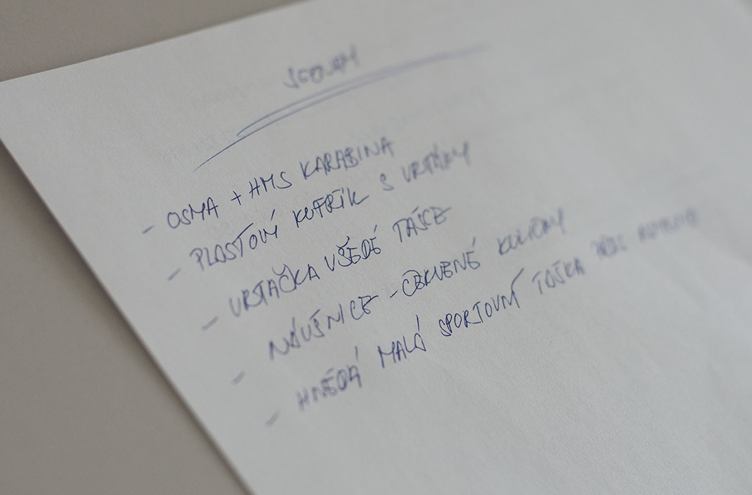 SEZNAM
- OSMA + HMS KARABINA
- PLASTOVÝ KUFŘÍK S VRTÁKY
- VRTAČKA V ŠEDÉ TAŠCE
- NÁUŠNICE - ČERVENÉ KULIČKY
- HNĚDÁ MALÁ SPORTOVNÍ TAŠKA